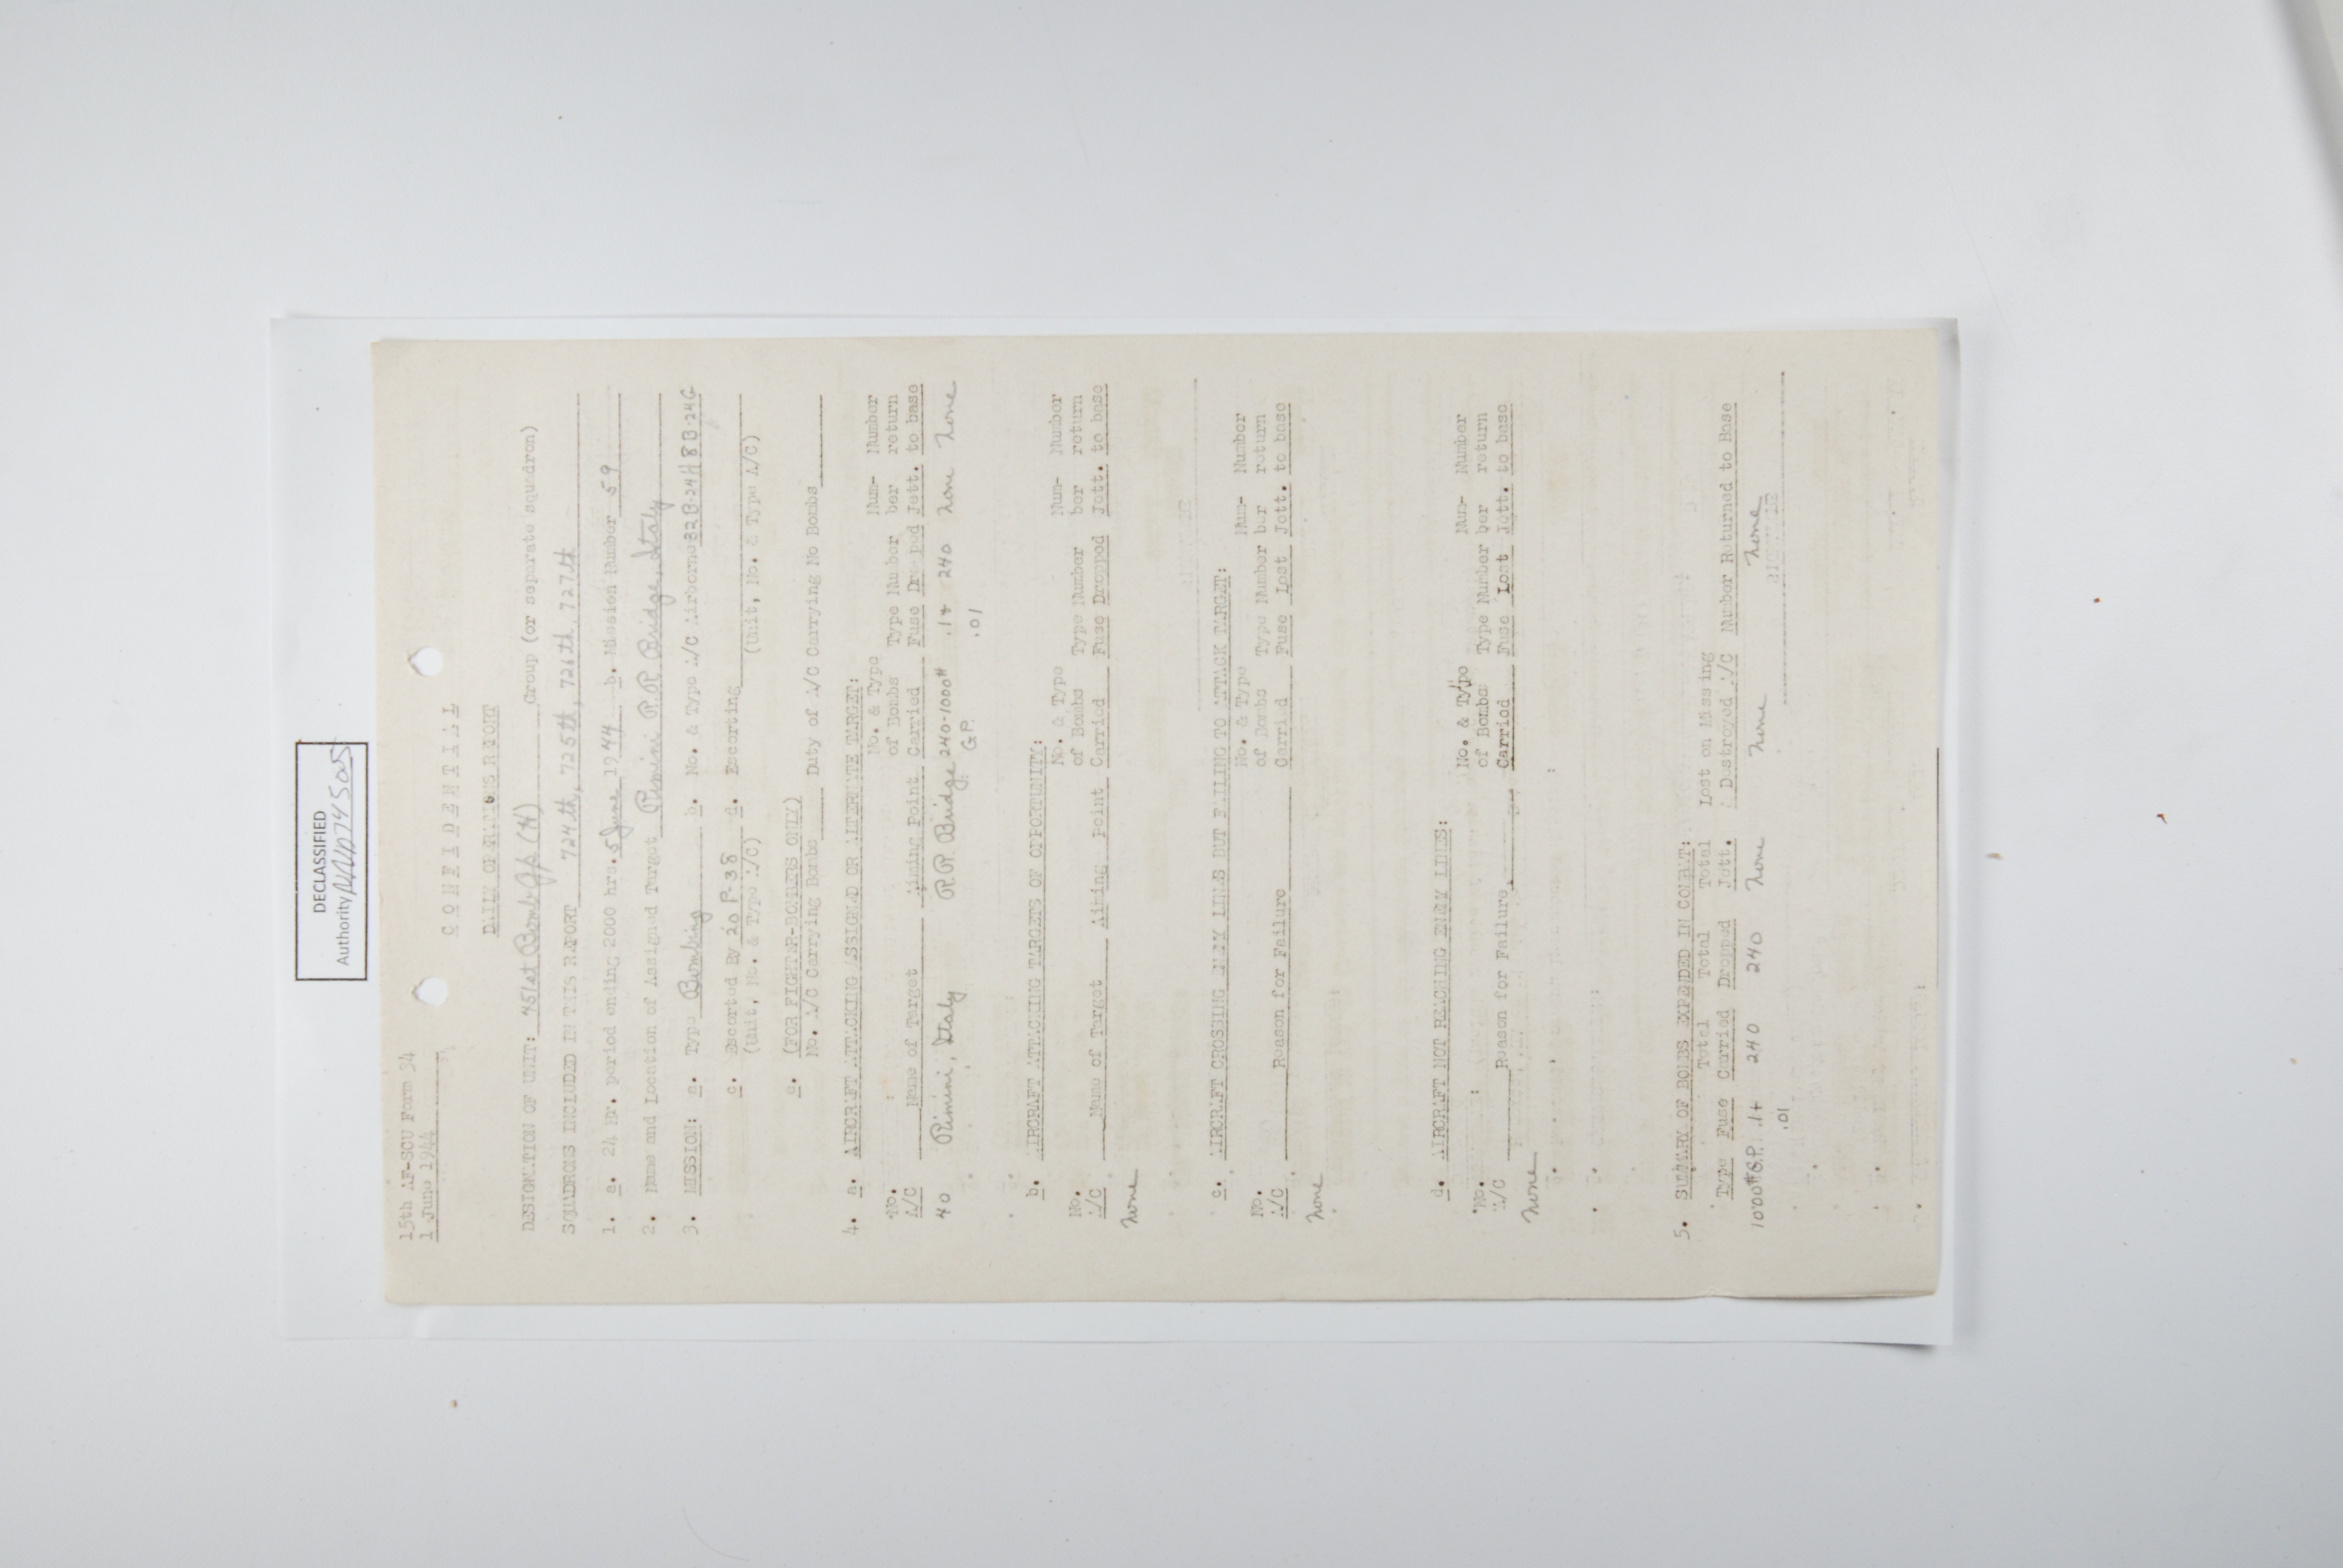 DECLASSIFIED
Authority NND745005
15th AF-SCU Form 34
1 June 1944
CONFIDENTIAL
DAILY OPERATIONS REPORT
DESIGNATION OF UNIT: 451st Bomb Gp (H) Group (or separate squadron)
SQUADRONS INCLUDED IN THIS REPORT 724th, 725th, 726th, 727th
1. a. 24 Hr. period ending 2000 hrs. 5 June 1944 b. Mission Number 59
2. Name and Location of Assigned Target Rimini R.R. Bridge, Italy
3. MISSION: a. Type Bombing b. No. & Type A/C Airborne 32 B-24H 8 B-24G
c. Escorted By 20 P-38 d. Escorting
(Unit, No. & Type A/C) (Unit, No. & Type A/C)
e. (FOR FIGHTER-BOMBERS ONLY)
No. A/C Carrying Bombs Duty of A/C Carrying No Bombs
4. a. AIRCRAFT ATTACKING ASSIGNED OR ALTERNATE TARGET:
No. & Type Num- Number
No. of Bombs Type Number ber return
A/C Name of Target Aiming Point Carried Fuse Dropped Jett. to base
40 Rimini, Italy R.R. Bridge 240-1000# .1+ 240 None None
G.P. .01
b. AIRCRAFT ATTACKING TARGETS OF OPPORTUNITY:
No. & Type Num- Number
No. of Bombs Type Number ber return
A/C Name of Target Aiming Point Carried Fuse Dropped Jett. to base
None
c. AIRCRAFT CROSSING ENEMY LINES BUT FAILING TO ATTACK TARGET:
No. & Type Num- Number
No. of Bombs Type Number ber return
A/C Reason for Failure Carried Fuse Lost Jett. to base
None
d. AIRCRAFT NOT REACHING ENEMY LINES:
No. & Type Num- Number
No. of Bombs Type Number ber return
A/C Reason for Failure Carried Fuse Lost Jett. to base
None
5. SUMMARY OF BOMBS EXPENDED IN COMBAT:
Total Total Total Lost on Missing
Type Fuse Carried Dropped Jett. Destroyed A/C Number Returned to Base
1000# G.P. .1+ 240 240 None None None
.01